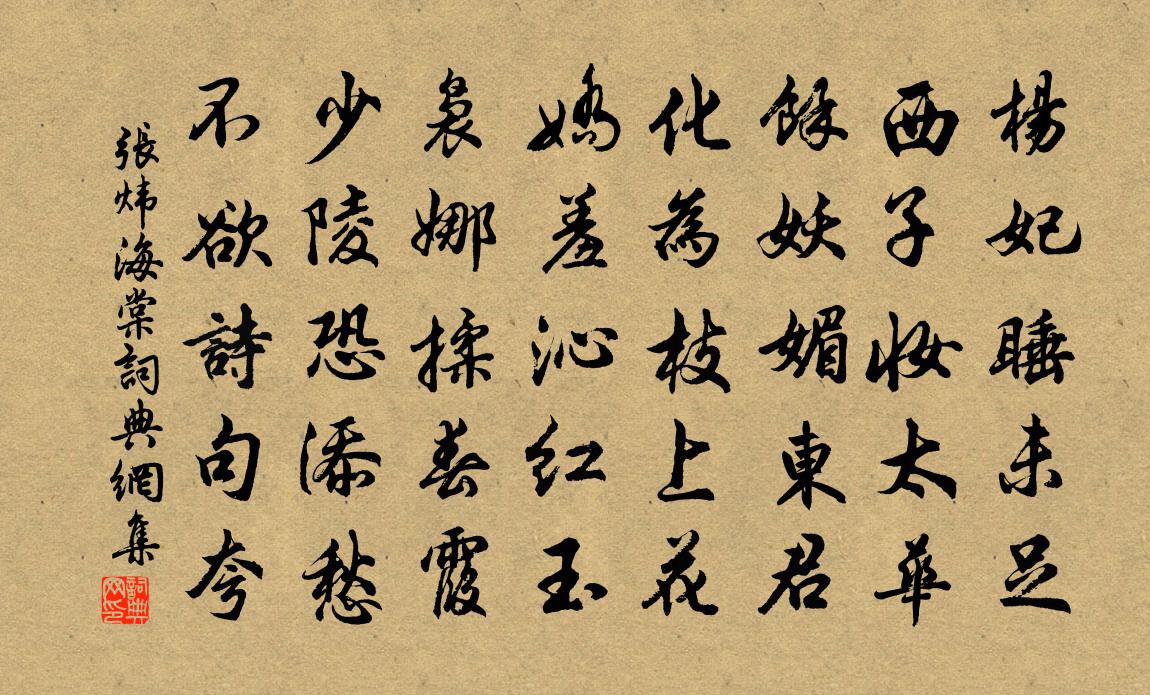 楊妃睡未足
西子妝太華
餘妖媚東君
化為枝上花
嬌羞沁紅玉
裊娜揉春霞
少陵恐添愁
不欲詩句夸
張煒海棠詞典網集
詞典網印